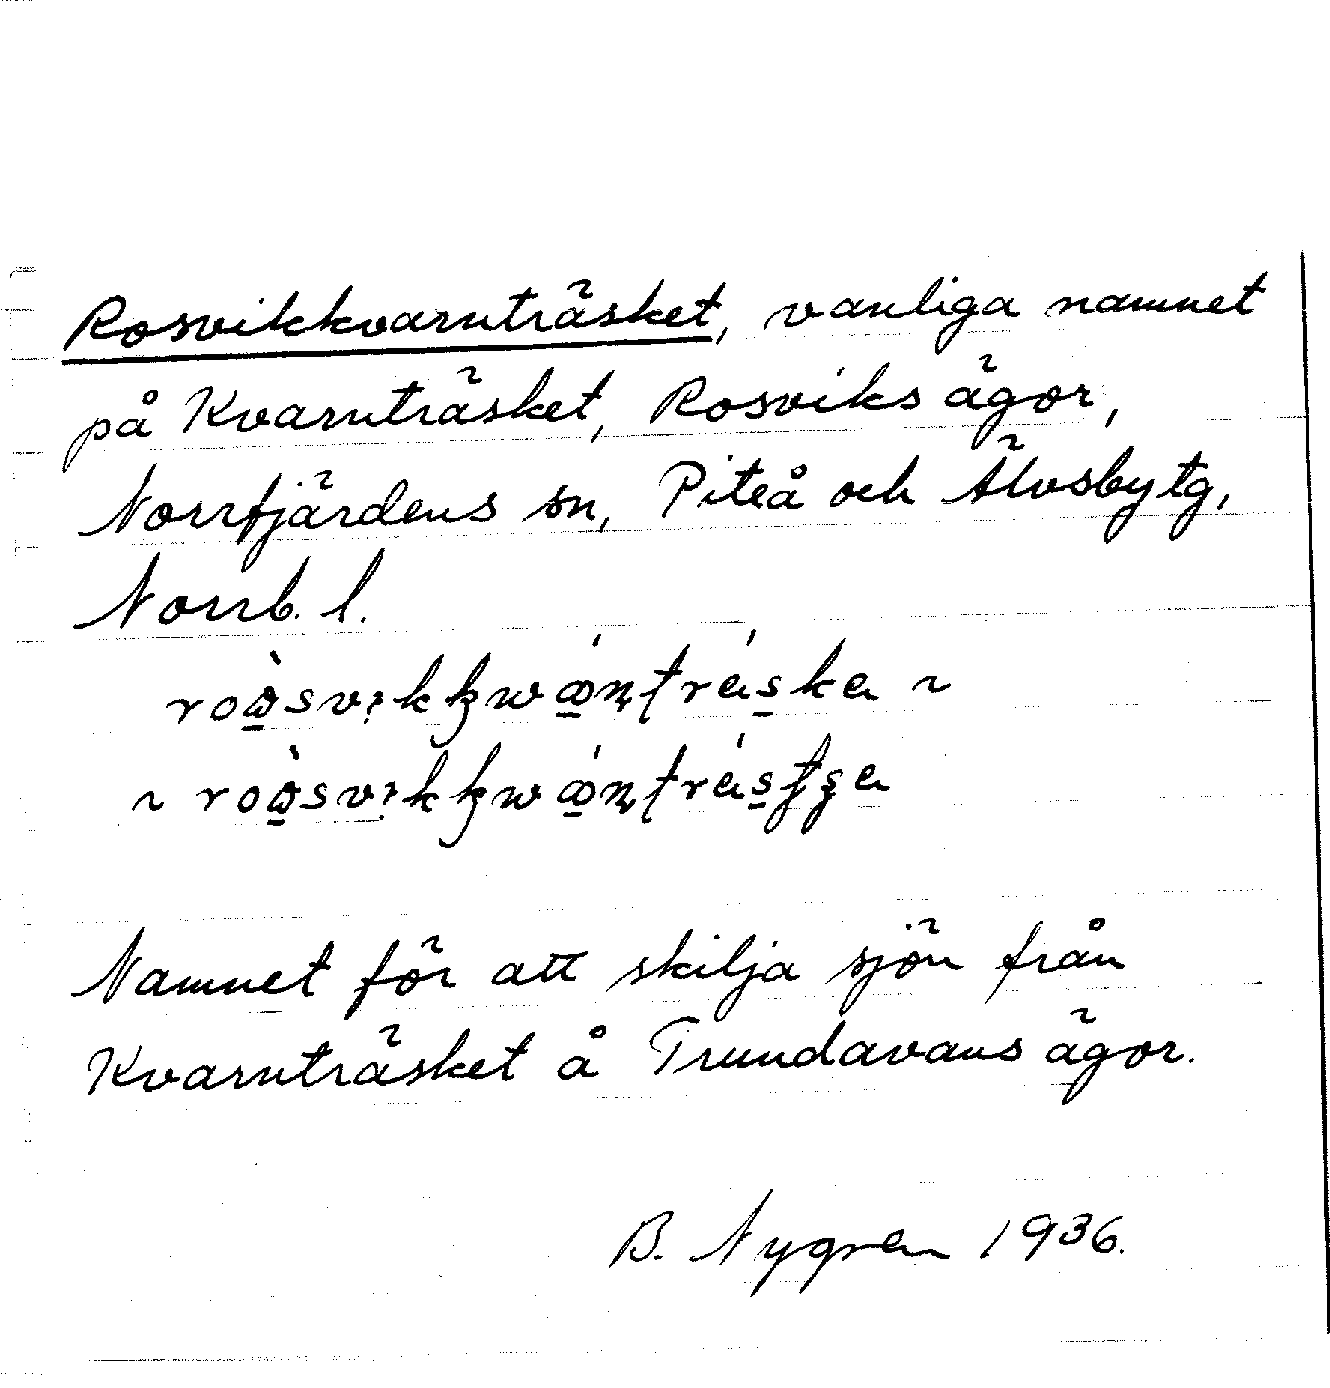 Rosvikkvarnträsket, vanliga namnet
på Kvarnträsket, Rosviks ägor,
Norrfjärdens sn, Piteå och Älvsby tg,
Norrb. l.
Namnet för att skilja sjön från
Kvarnträsket å Trundavans ägor.
B. Nygren 1936.